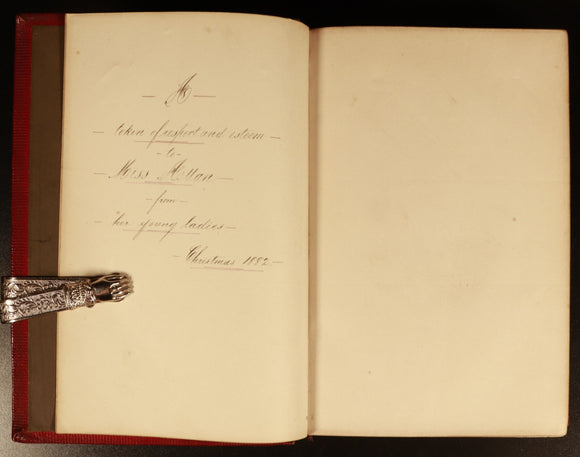 — A —
— token of respect and esteem —
- to -
— Miss Allan —
— from —
— her young ladies —
— Christmas 1882 —